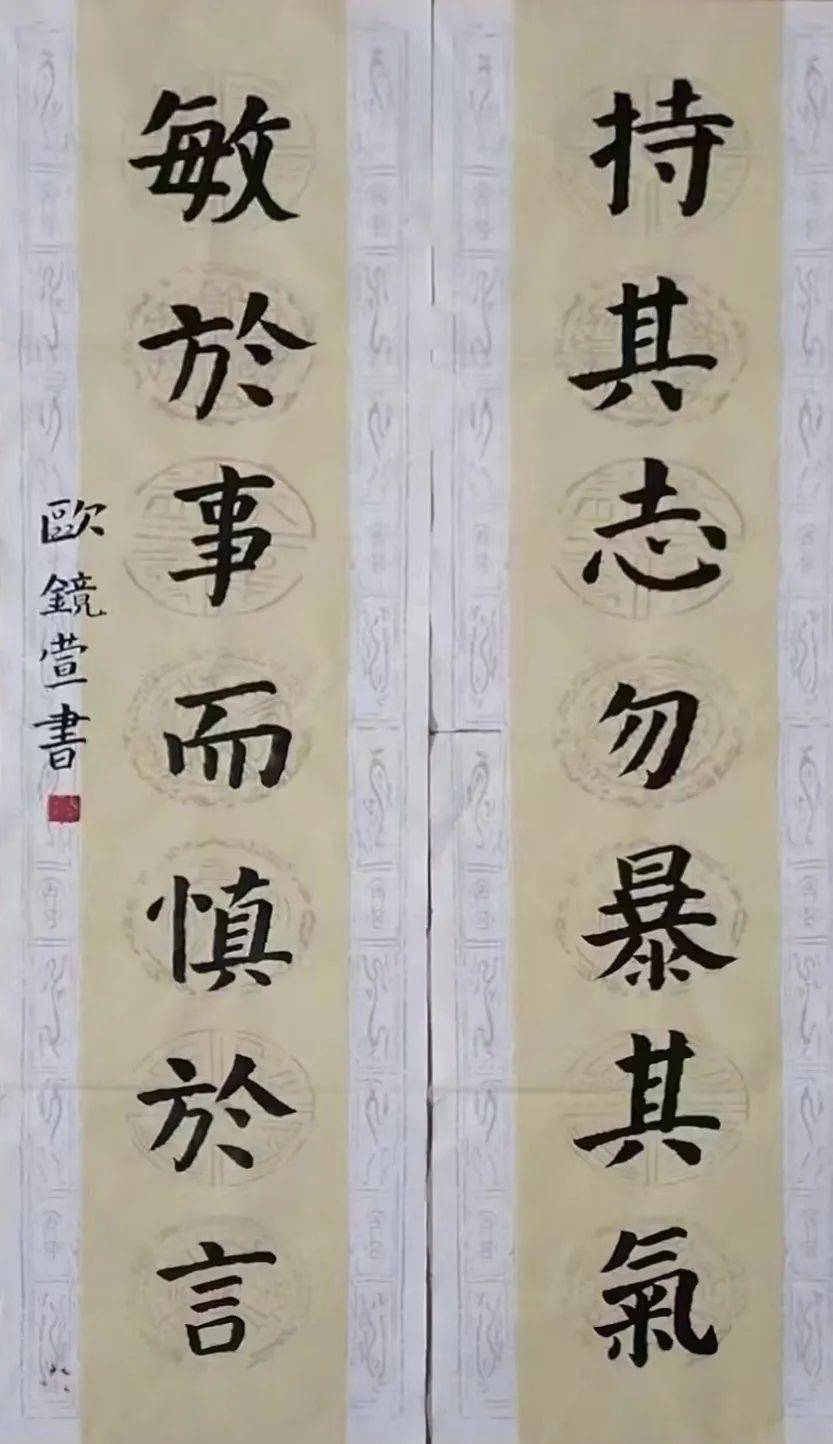 持其志勿暴其氣
敏於事而慎於言
歐鏡萱書